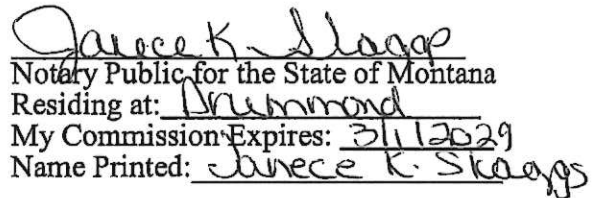 Janece K. Skaggs
Notary Public for the State of Montana
Residing at: Drummond
My Commission Expires: 3/1/2029
Name Printed: Janece K. Skaggs